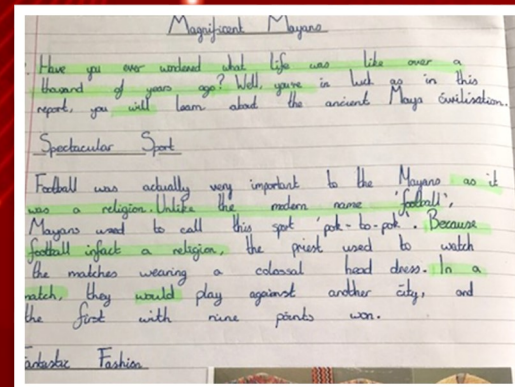 Magnificent Mayans
Have you ever wondered what life was like over a
thousand of years ago? Well, you're in luck as in this
report, you will learn about the ancient Maya civilisation.
Spectacular Sport
Football was actually very important to the Mayans as it
was a religion. Unlike the modern name 'football',
Mayans used to call this sport 'pok-to-pok'. Because
football infact a religion, the priest used to watch
the matches wearing a colossal head dress. In a
match, they would play against another city, and
the first with nine points won.
Fantastic Fashion